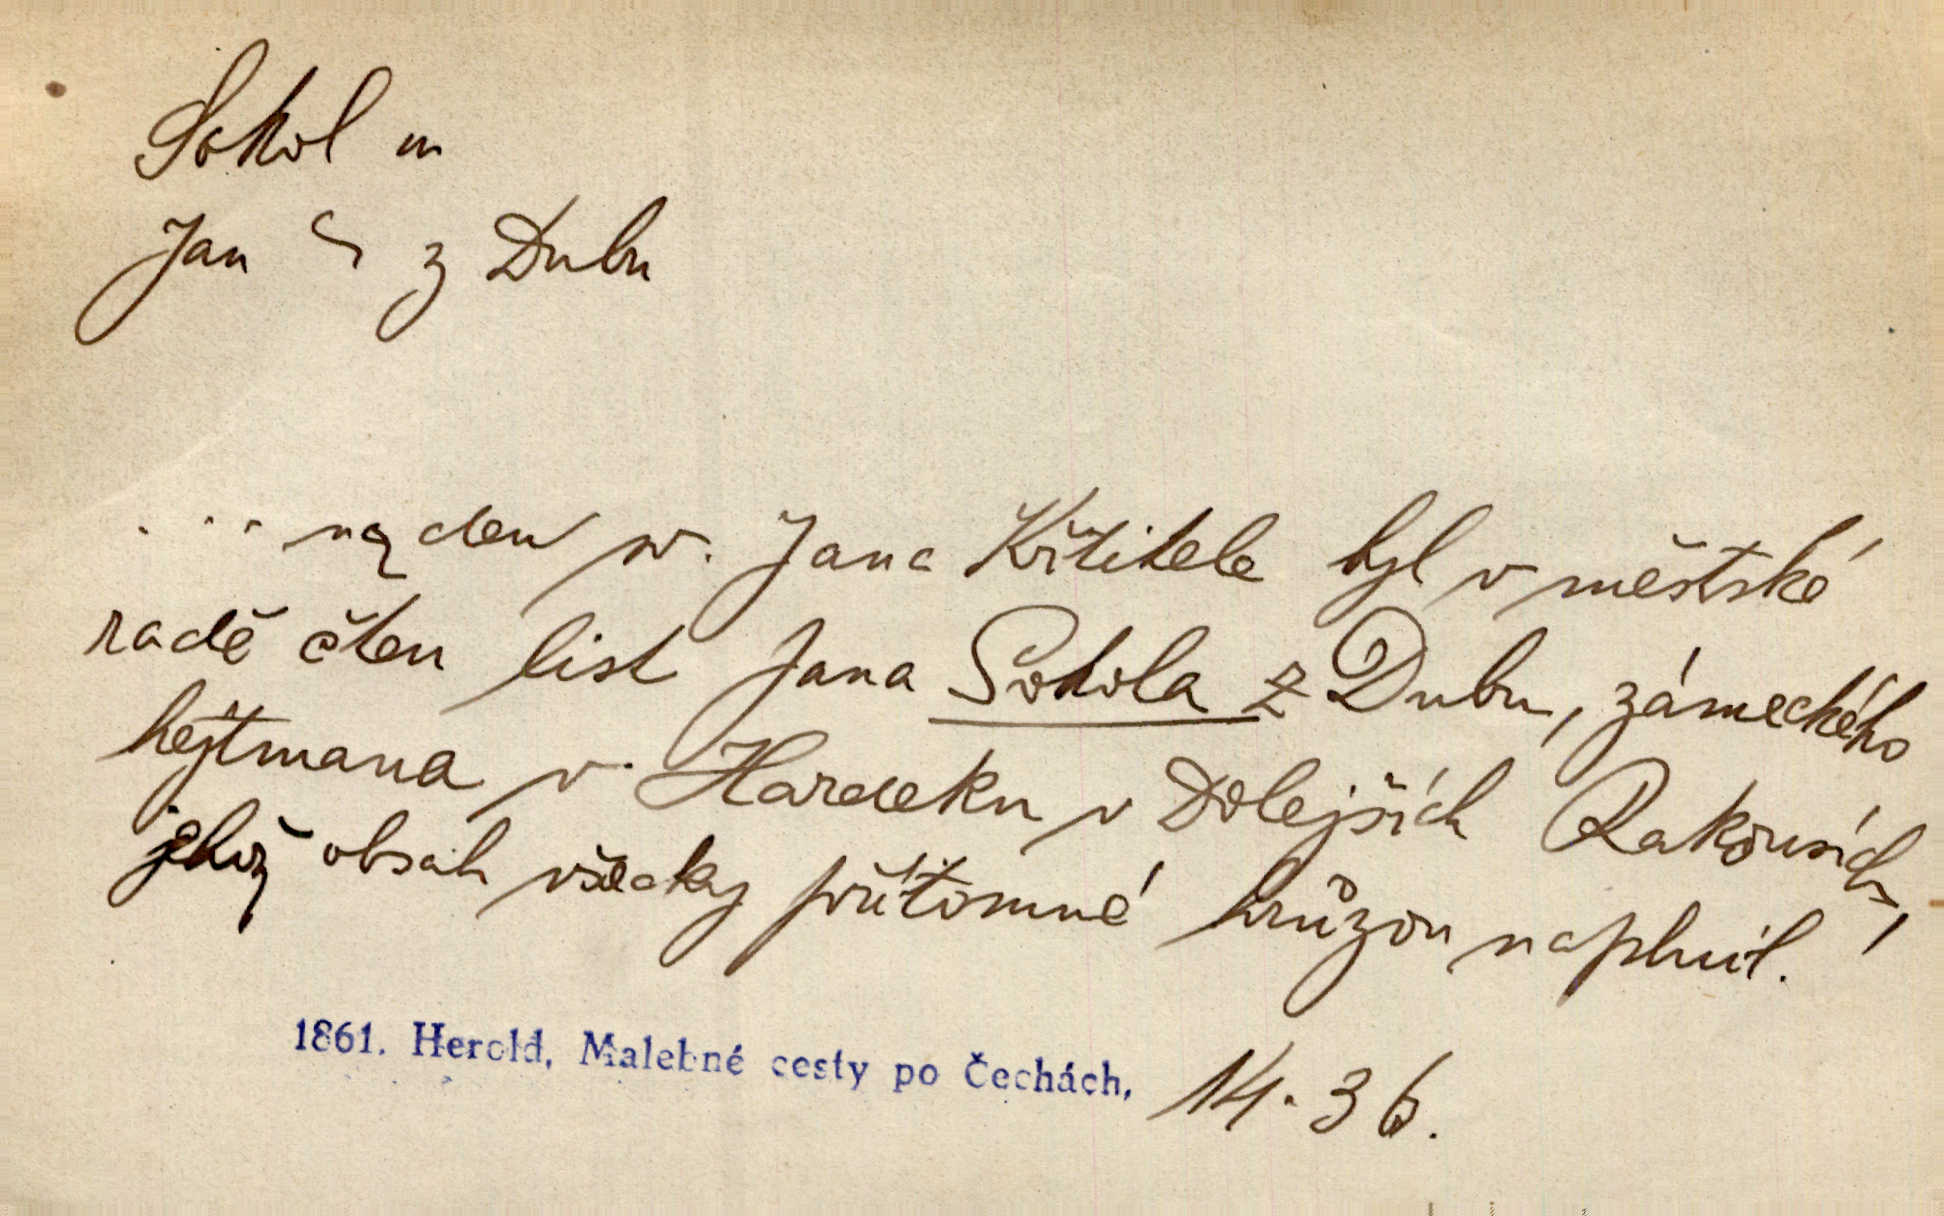 Sokol m
Jan ~ z Dubu
... na den sv. Jana Křtitele byl v městské
radě čten list Jana Sokola z Dubu, zámeckého
hejtmana v Hardeku v Dolejších Rakousích,
jehož obsah všecky přítomné hrůzou naplnil.
1861. Herold, Malebné cesty po Čechách, 14. 36.